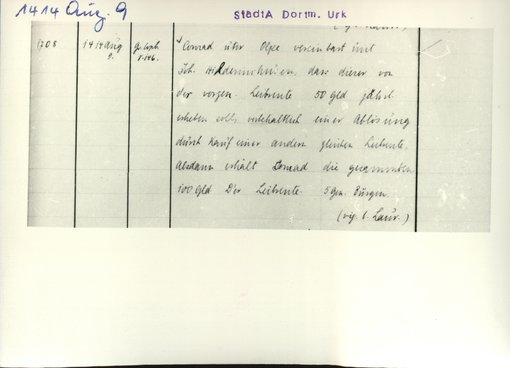 1414 Aug. 9
StadtA Dortm. Urk
1708
1414 Aug
9.
Conrad üter Olpe vereinbart mit
Joh. dass dieser von
der vorgen. Leibrente 50 Gld jährl.
erheben solle vorbehaltlich einer Ablösung
durch Kauf einer andern gleichen Leibrente.
Alsdann erhält Conrad die gesammten
100 Gld Der Leibrente. 5 Gen. Bürgen.
(vig. S. Laur.)